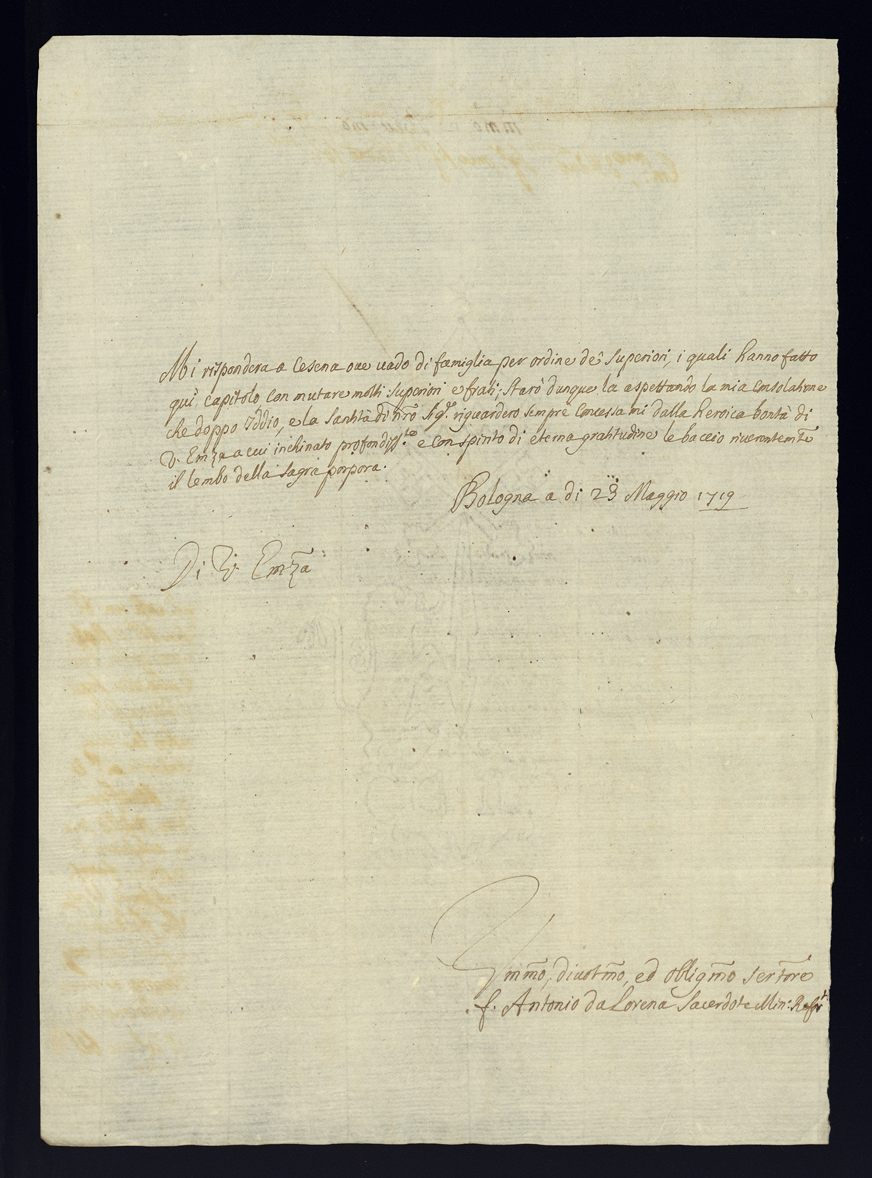 Mi risponderà a Cesena oue uado di famiglia per ordine de Superiori, i quali hanno fatto
quì capitolo con mutare molti superiori e frati; Starò dunque la aspettando la mia consolatione
che doppo Iddio, e la Santità di nr̃o Sig.re riguarderò sempre concessami dalla heroica bontà di
V. Emza a cui inchinato profondiss.te e con spirito di eterna gratitudine le baccio riuerentem̃te
il lembo della sagra porpora.
Bologna a di 23 Maggio 1719
Di V. Emza
Vmm̃o, diuotm̃o, ed obligm̃o ser.tore
f. Antonio da Lorena Sacerdote Min: Rifr.t